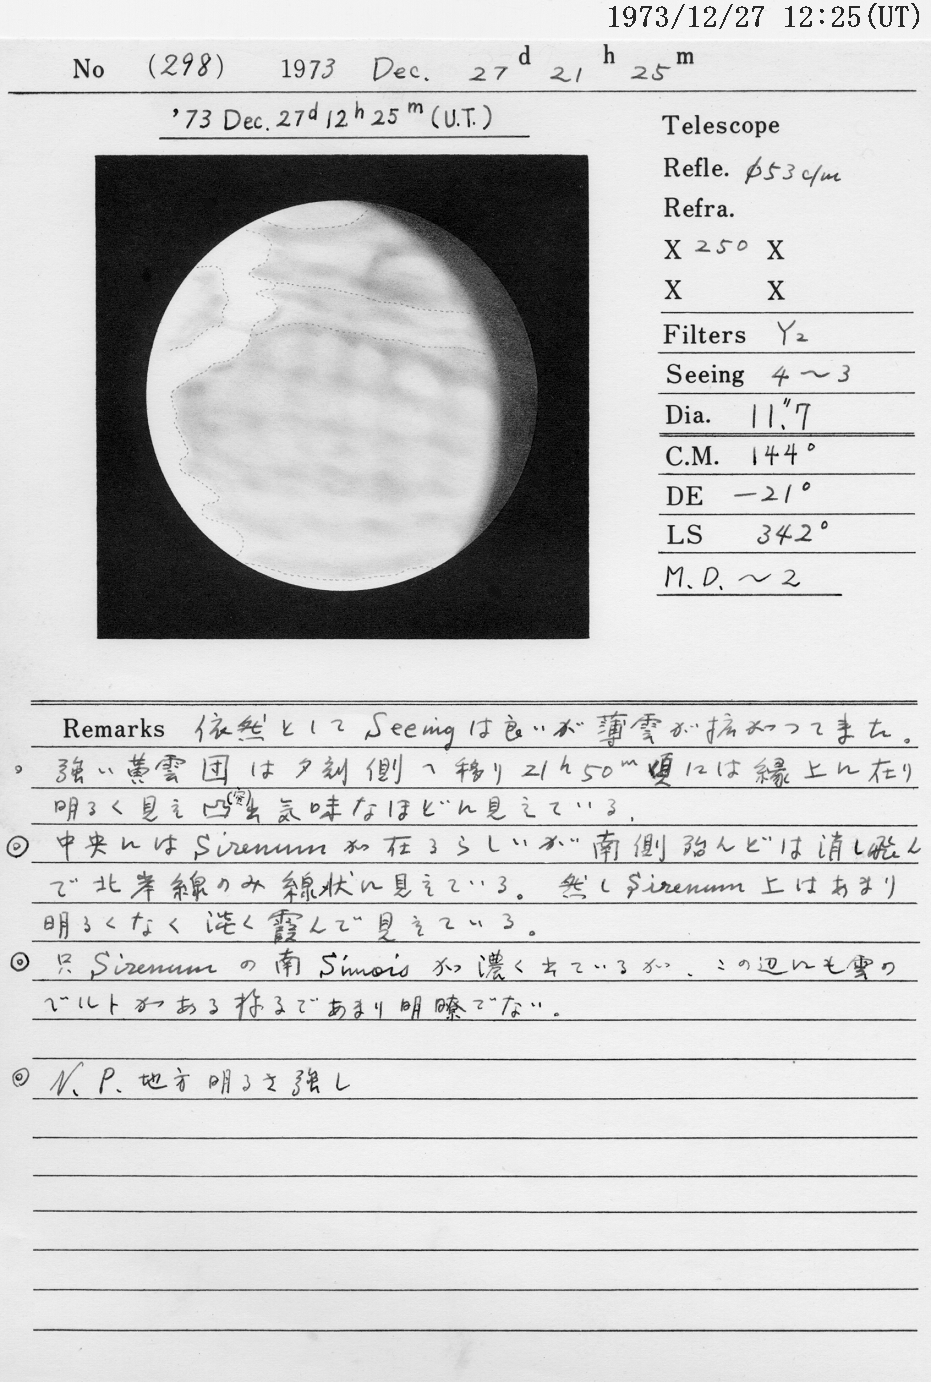 1973/12/27 12:25(UT)
No (298) 1973 Dec. 27 d 21 h 25 m
'73 Dec. 27d 12h 25m (U.T.)
Telescope
Refle. φ53 c/m
Refra.
X 250 X
X X
Filters Y2
Seeing 4～3
Dia. 11."7
C.M. 144°
DE −21°
LS 342°
M.D. ～2
Remarks 依然として Seeing は良いが薄雲が拡がってきた。
強い黄雲団は夕刻側へ移り 21h 50m 頃には縁上に在り
明るく見え凸出気味なほどに見えている.
◎ 中央には Sirenum が在るらしいが南側殆んどは消し飛ん
で北岸線のみ線状に見えている。然し Sirenum 上はあまり
明るくなく淡く霞んで見えている。
◎ 只 Sirenum の南 Simois が濃く出ているが、この辺にも雲の
ベルトがある様であまり明瞭でない。
◎ N.P. 地方明るさ強し